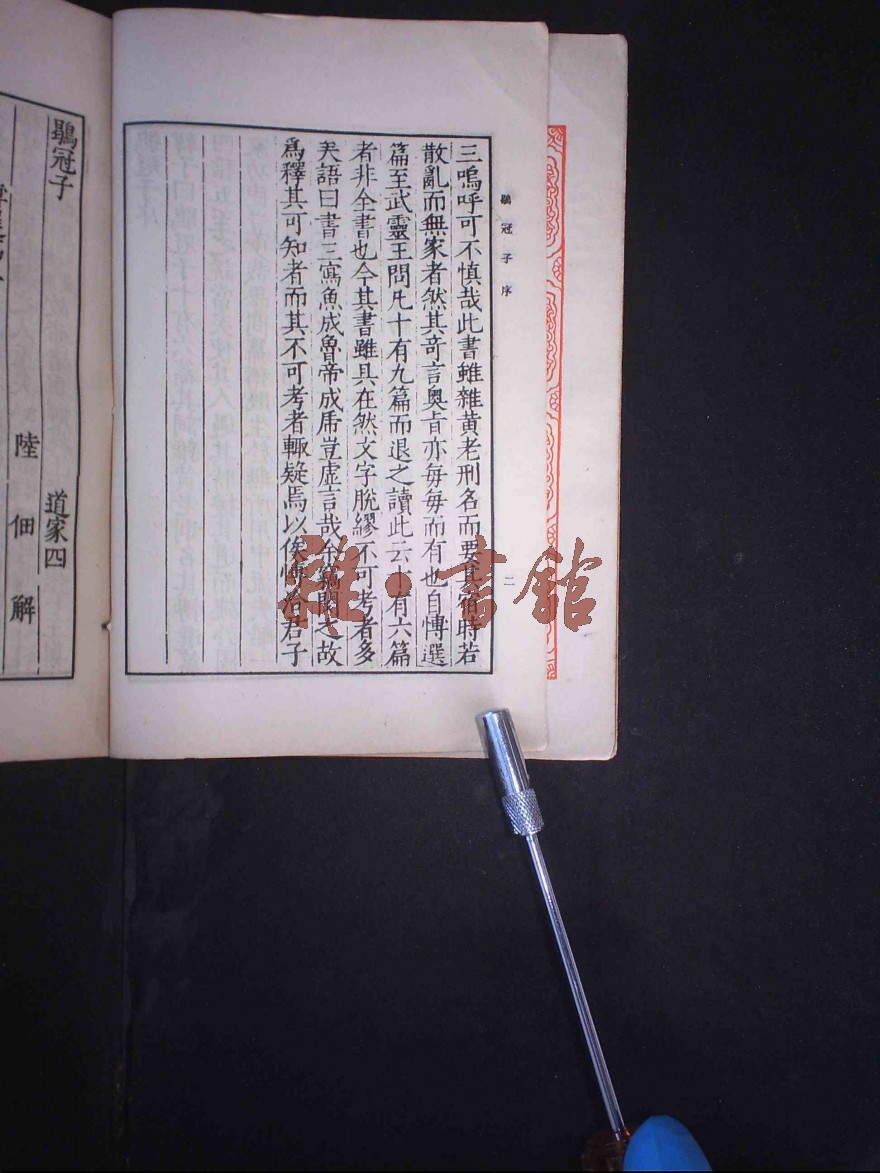 鶡冠子 序 二
三嗚呼可不慎哉此書雖雜黃老刑名而要其宿時若
散亂而無家者然其奇言奧旨亦每每而有也自博選
篇至武靈王問凡十有九篇而退之讀此云十有六篇
者非全書也今其書雖具在然文字脫繆不可考者多
矣語曰書三寫魚成魯帝成虎豈虛言哉余竊閔之故
爲釋其可知者而其不可考者輙疑焉以俟博洽君子
鶡冠子 道家四
陸佃解
雅·書館